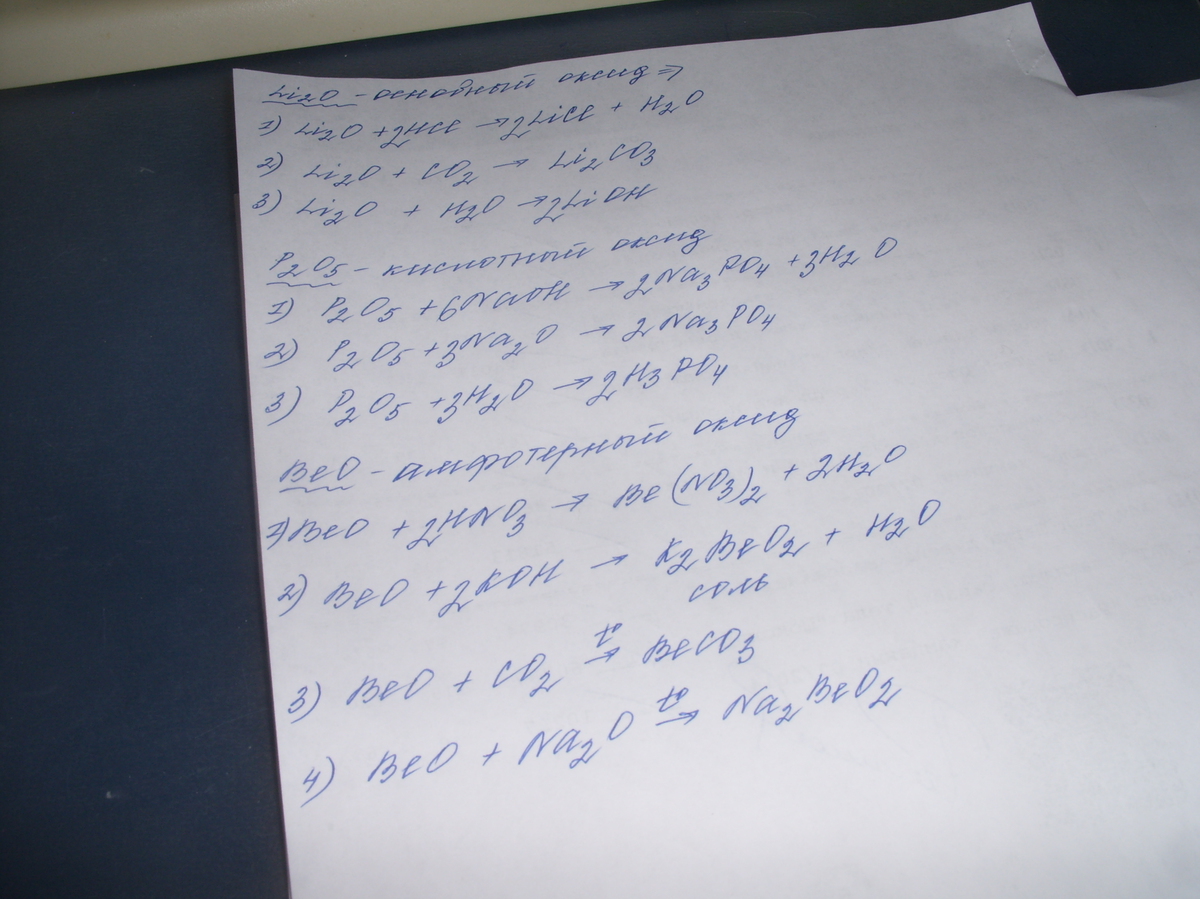 Li2O - основный оксид ⇒
1) Li2O + 2HCl → 2LiCl + H2O
2) Li2O + CO2 → Li2CO3
3) Li2O + H2O → 2LiOH
P2O5 - кислотный оксид
1) P2O5 + 6NaOH → 2Na3PO4 + 3H2O
2) P2O5 + 3Na2O → 2Na3PO4
3) P2O5 + 3H2O → 2H3PO4
BeO - амфотерный оксид
1) BeO + 2HNO3 → Be(NO3)2 + 2H2O
2) BeO + 2KOH → K2BeO2 + H2O
соль
3) BeO + CO2 t° → BeCO3
4) BeO + Na2O t° → Na2BeO2